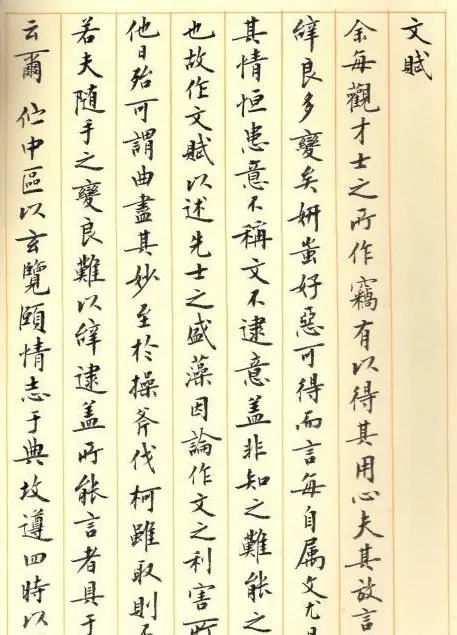 文賦
余每觀才士之所作竊有以得其用心夫其放言
辭良多變矣妍蚩好惡可得而言每自属文尤
其情恒患意不稱文不逮意盖非知之難能之
也故作文賦以述先士之盛藻因論作文之利害所
他日殆可謂曲盡其妙至於操斧伐柯雖取則
若夫随手之變良難以辭逮盖所能言者具于
云爾 佇中區以玄覽頤情志于典坟遵四時以